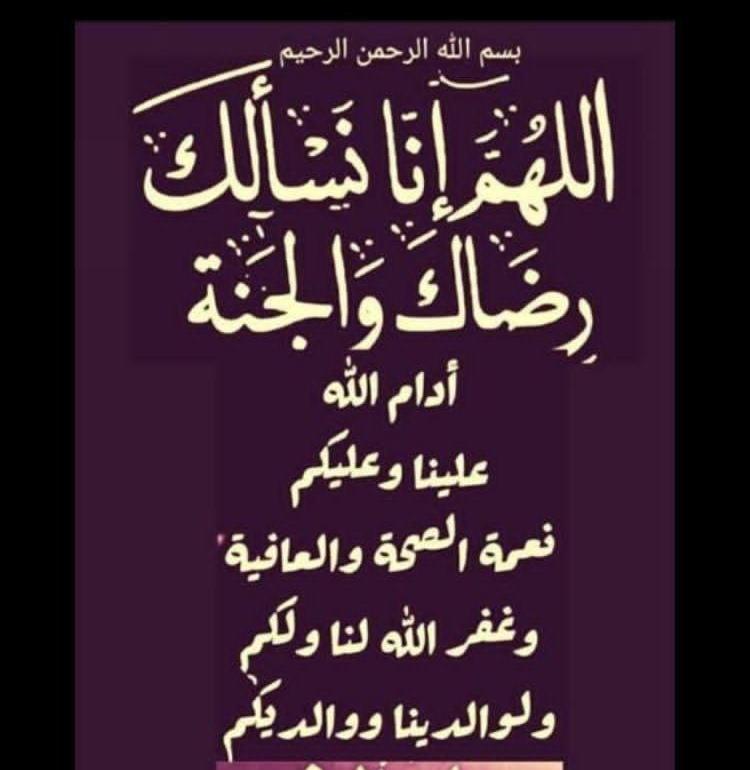 بسم الله الرحمن الرحيم
اللهُمَّ إِنَّا نَسْأَلُكَ
رِضَاكَ وَالجَنَة
أدام الله
علينا وعليكم
نعمة الصحة والعافية
وغفر الله لنا ولكم
ولوالدينا ووالديكم